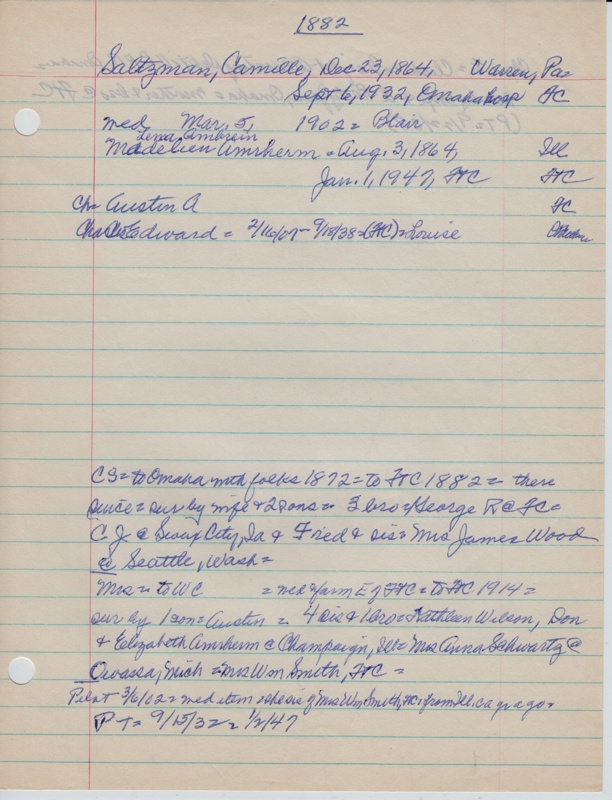 1882
Saltzman, Camille, Dec 23, 1864, Warren, Pa=
Sept 6, 1932, Omaha Hosp FC
med Mar, 5, 1902= Blair
Lena
Madelien Amrherm = Aug. 3, 1864, Ill
Jan. 1, 1947, FC FC
Ch= Austin A FC
Edward = 2/16/07 - 9/18/38=(FC)=Louise
CS= to Omaha with folks 1872= to FC 1882= there
since= sur by wife + 2 sons= 3 bro= George R @ FC=
C J @ Sioux City, Ia + Fred + sis= Mrs James Wood
@ Seattle, Wash=
Mrs= to WC = med + farm E of FC= to FC 1914=
sur by 1 son= Austin = 4 sis + 1 bro= Kathleen Wilson, Don
+ Elizabeth Amrherm @ Champaign, Ill= Mrs Anna Schwartz @
Owassa, Mich = Mrs Wm Smith, FC=
Pilot 3/6/02= med item = she sis of Mrs Wm Smith, FC= from Ill. ca yr ago=
PT= 9/15/32= 1/2/47